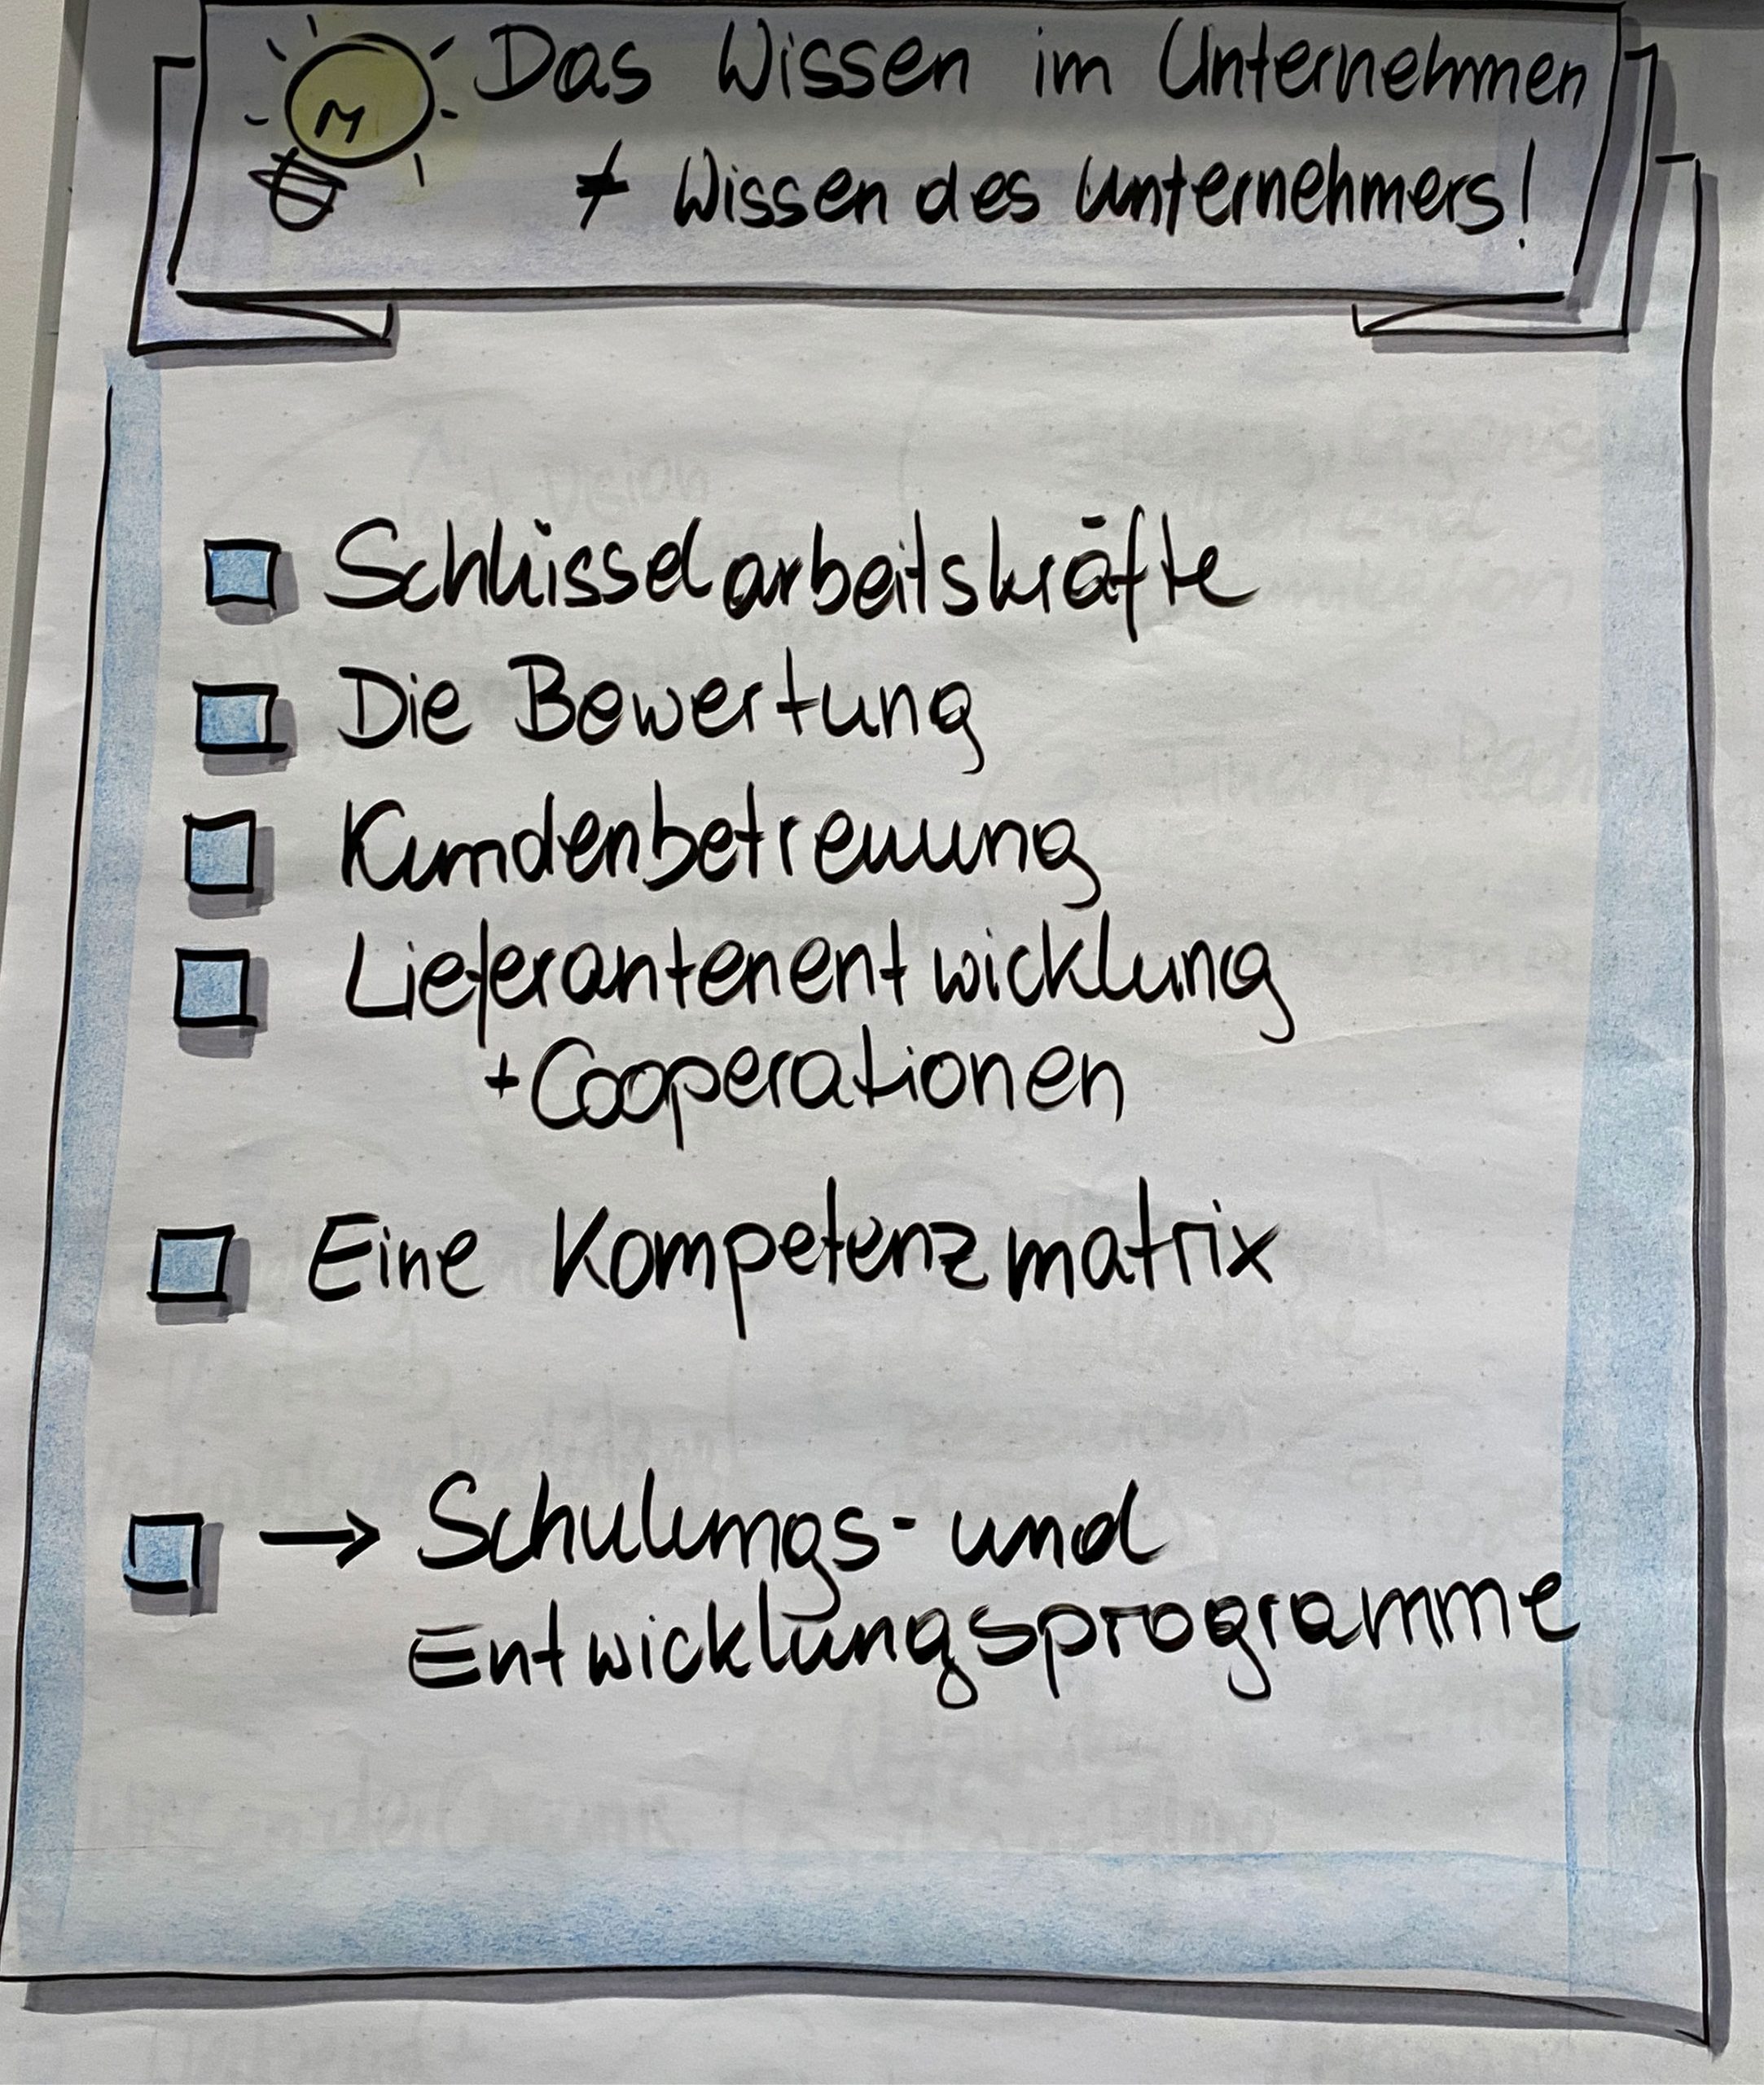 Das Wissen im Unternehmen
≠ Wissen des Unternehmers!
Schlüsselarbeitskräfte
Die Bewertung
Kundenbetreuung
Lieferantenentwicklung
+ Cooperationen
Eine Kompetenzmatrix
→ Schulungs- und
Entwicklungsprogramme